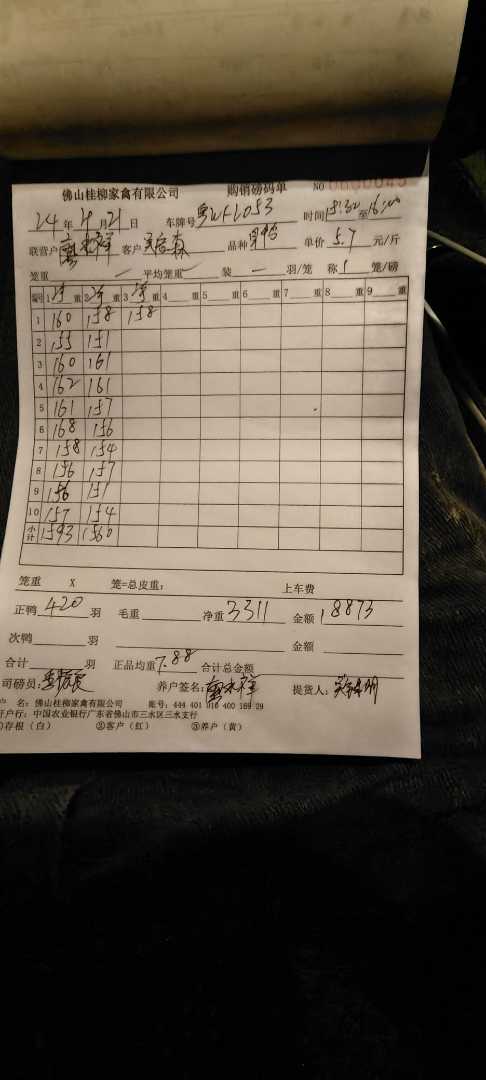 佛山桂柳家禽有限公司 购销磅码单 NO 0000045
24年4月21日 车牌号 时间15:30至16:00
联营户 客户 品种 单价5.7元/斤
笼重 — 平均笼重 — 装 — 羽/笼 称1笼/磅
1净重 2净重 3净重 4 重 5 重 6 重 7 重 8 重 9 重
1 160 158 158
2 155 151
3 160 161
4 162 161
5 161 157
6 168 156
7 158 154
8 156 157
9 156 151
10 157 154
小计 1593 1560
笼重 X 笼=总皮重: 上车费
正鸭420羽 毛重 净重3311 金额18873
次鸭 羽 金额
合计 羽 正品均重7.88 合计总金额
司磅员: 养户签名: 提货人:
户 名: 佛山桂柳家禽有限公司 账号: 444 401 016 400 169 29
开户行: 中国农业银行广东省佛山市三水区三水支行
①存根(白) ②客户(红) ③养户(黄)